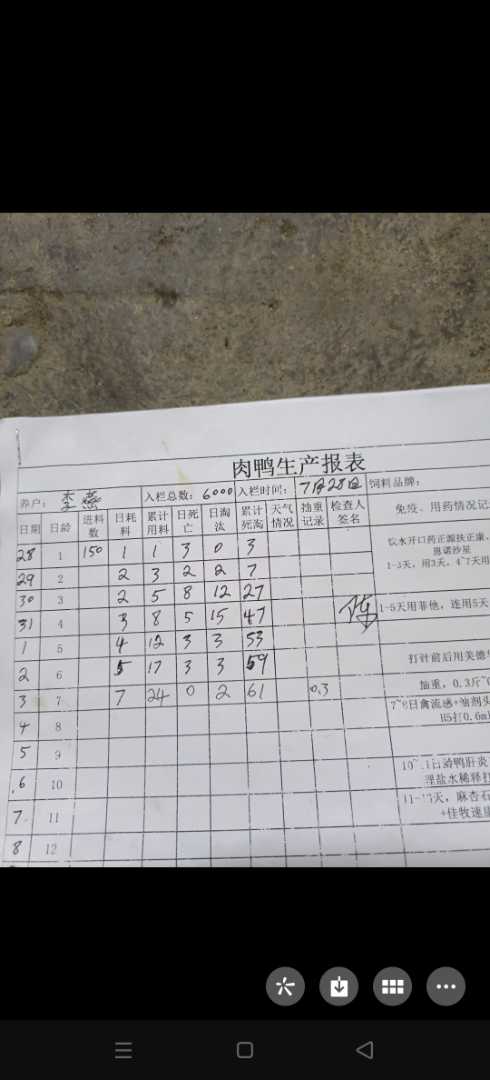 肉鸭生产报表
养户： 李燕 入栏总数：6000 入栏时间：7月28日 饲料品牌：
日期 日龄 进料数 日耗料 累计用料 日死亡 日淘汰 累计死淘 天气情况 抽重记录 检查人签名 免疫、用药情况记
28 1 150 1 1 3 0 3 饮水开口药正源扶正康、恩诺沙星
1-3天，用3天，4~7天用
29 2 2 3 2 2 7
30 3 2 5 8 12 27
31 4 3 8 5 15 47 陈 1-5天用菲他，连用5天
1 5 4 12 3 3 53
2 6 5 17 3 3 59 打针前后用美德
3 7 7 24 0 2 61 0.3 抽重，0.3斤
4 8 7~8日禽流感+油剂
H5打0.6m
5 9
6 10 鸭肝炎
理盐水稀释打
7 11 天，麻杏石
+佳牧速
8 12